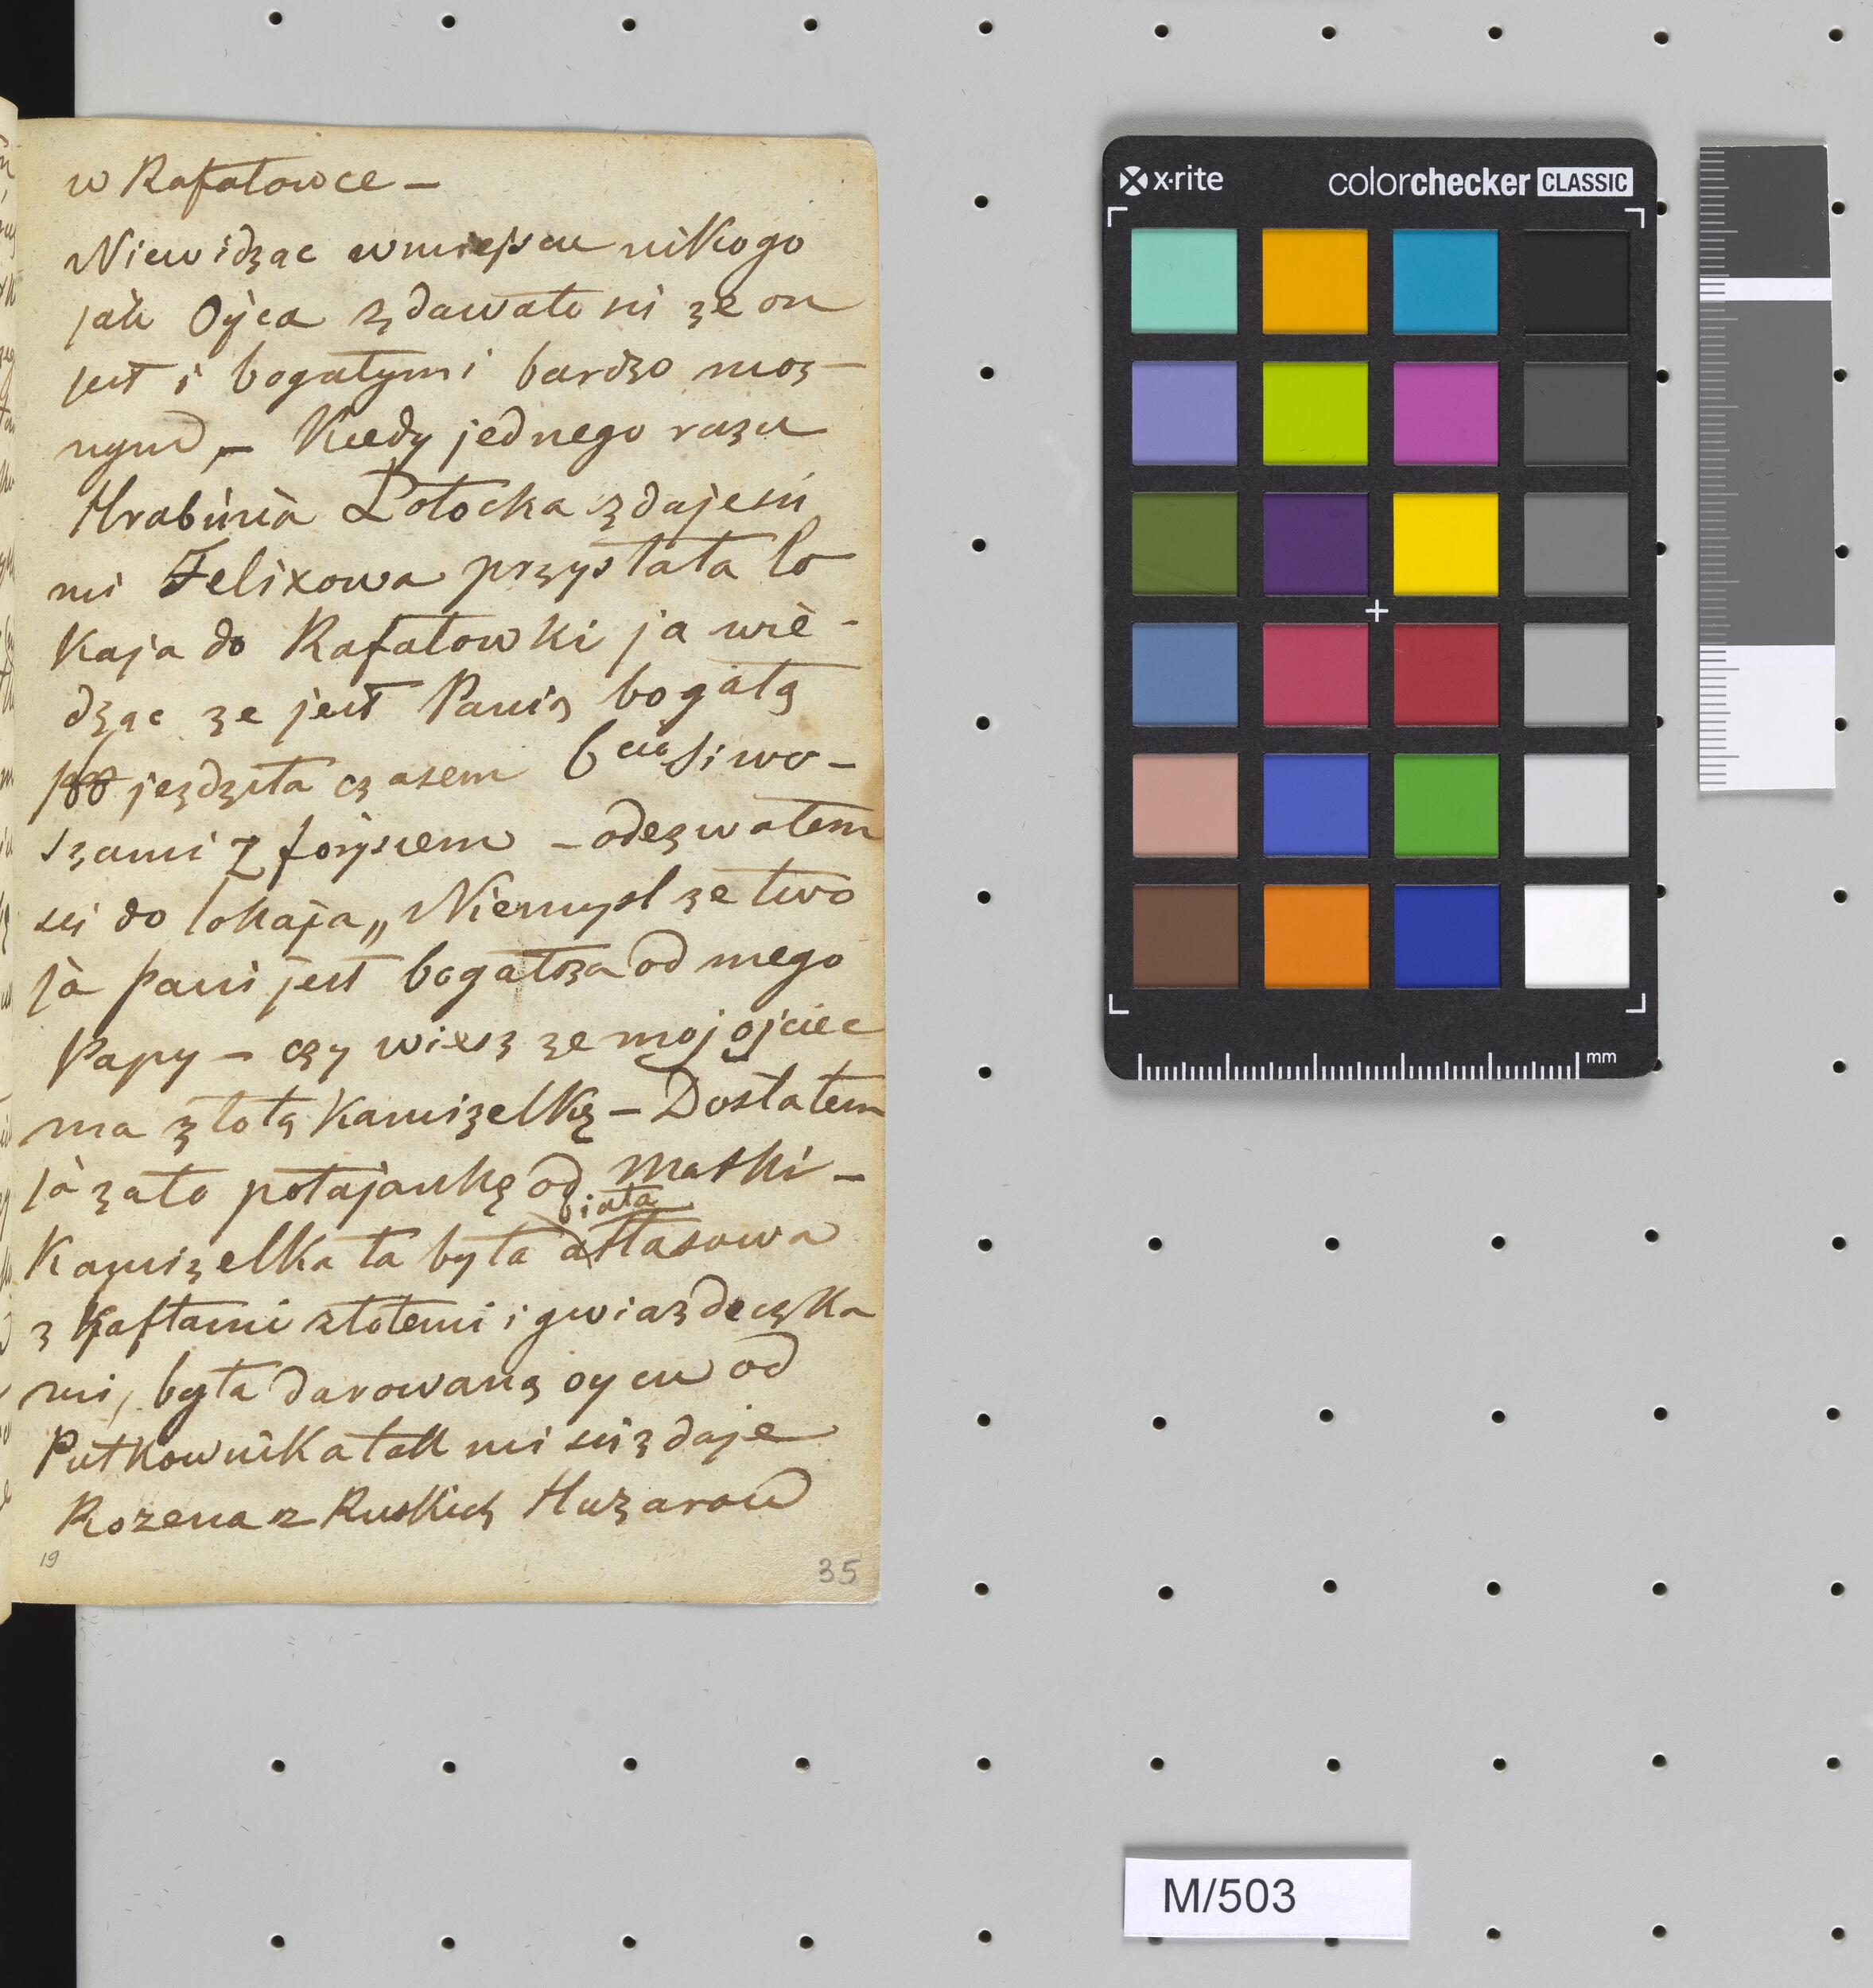 w Rafałowce –
Niewidząc w miejscu nikogo
jak Oÿca zdawało mi że on
jest i bogatym i bardzo moż–
nym, – Kiedy jednego razu
Hrabinia Potocka zdaje si
mi Felixowa przysłała lo
kaja do Rafałowki ja wie-
dząc że jest Panią bogatą
jezdziła czasem 6cią siwo–
szami z foryśiem – odezwałem
się do lokaja „ Niemysl że two
ja pani jest bogatsza od mego
Papy – czy wiesz że moj ojciec
ma złotą Kamizelkę – Dostałem
ja zato połajankę od Matki –
biała
Kamizelka ta była atłasowa
z Haftami złotemi i gwiazdeczka
mi, była darowaną oycu od
Pułkownika tak mi się zdaje
Rozena z Ruskich Huzarow
19
35
x-rite
colorchecker CLASSIC
mm
M/503